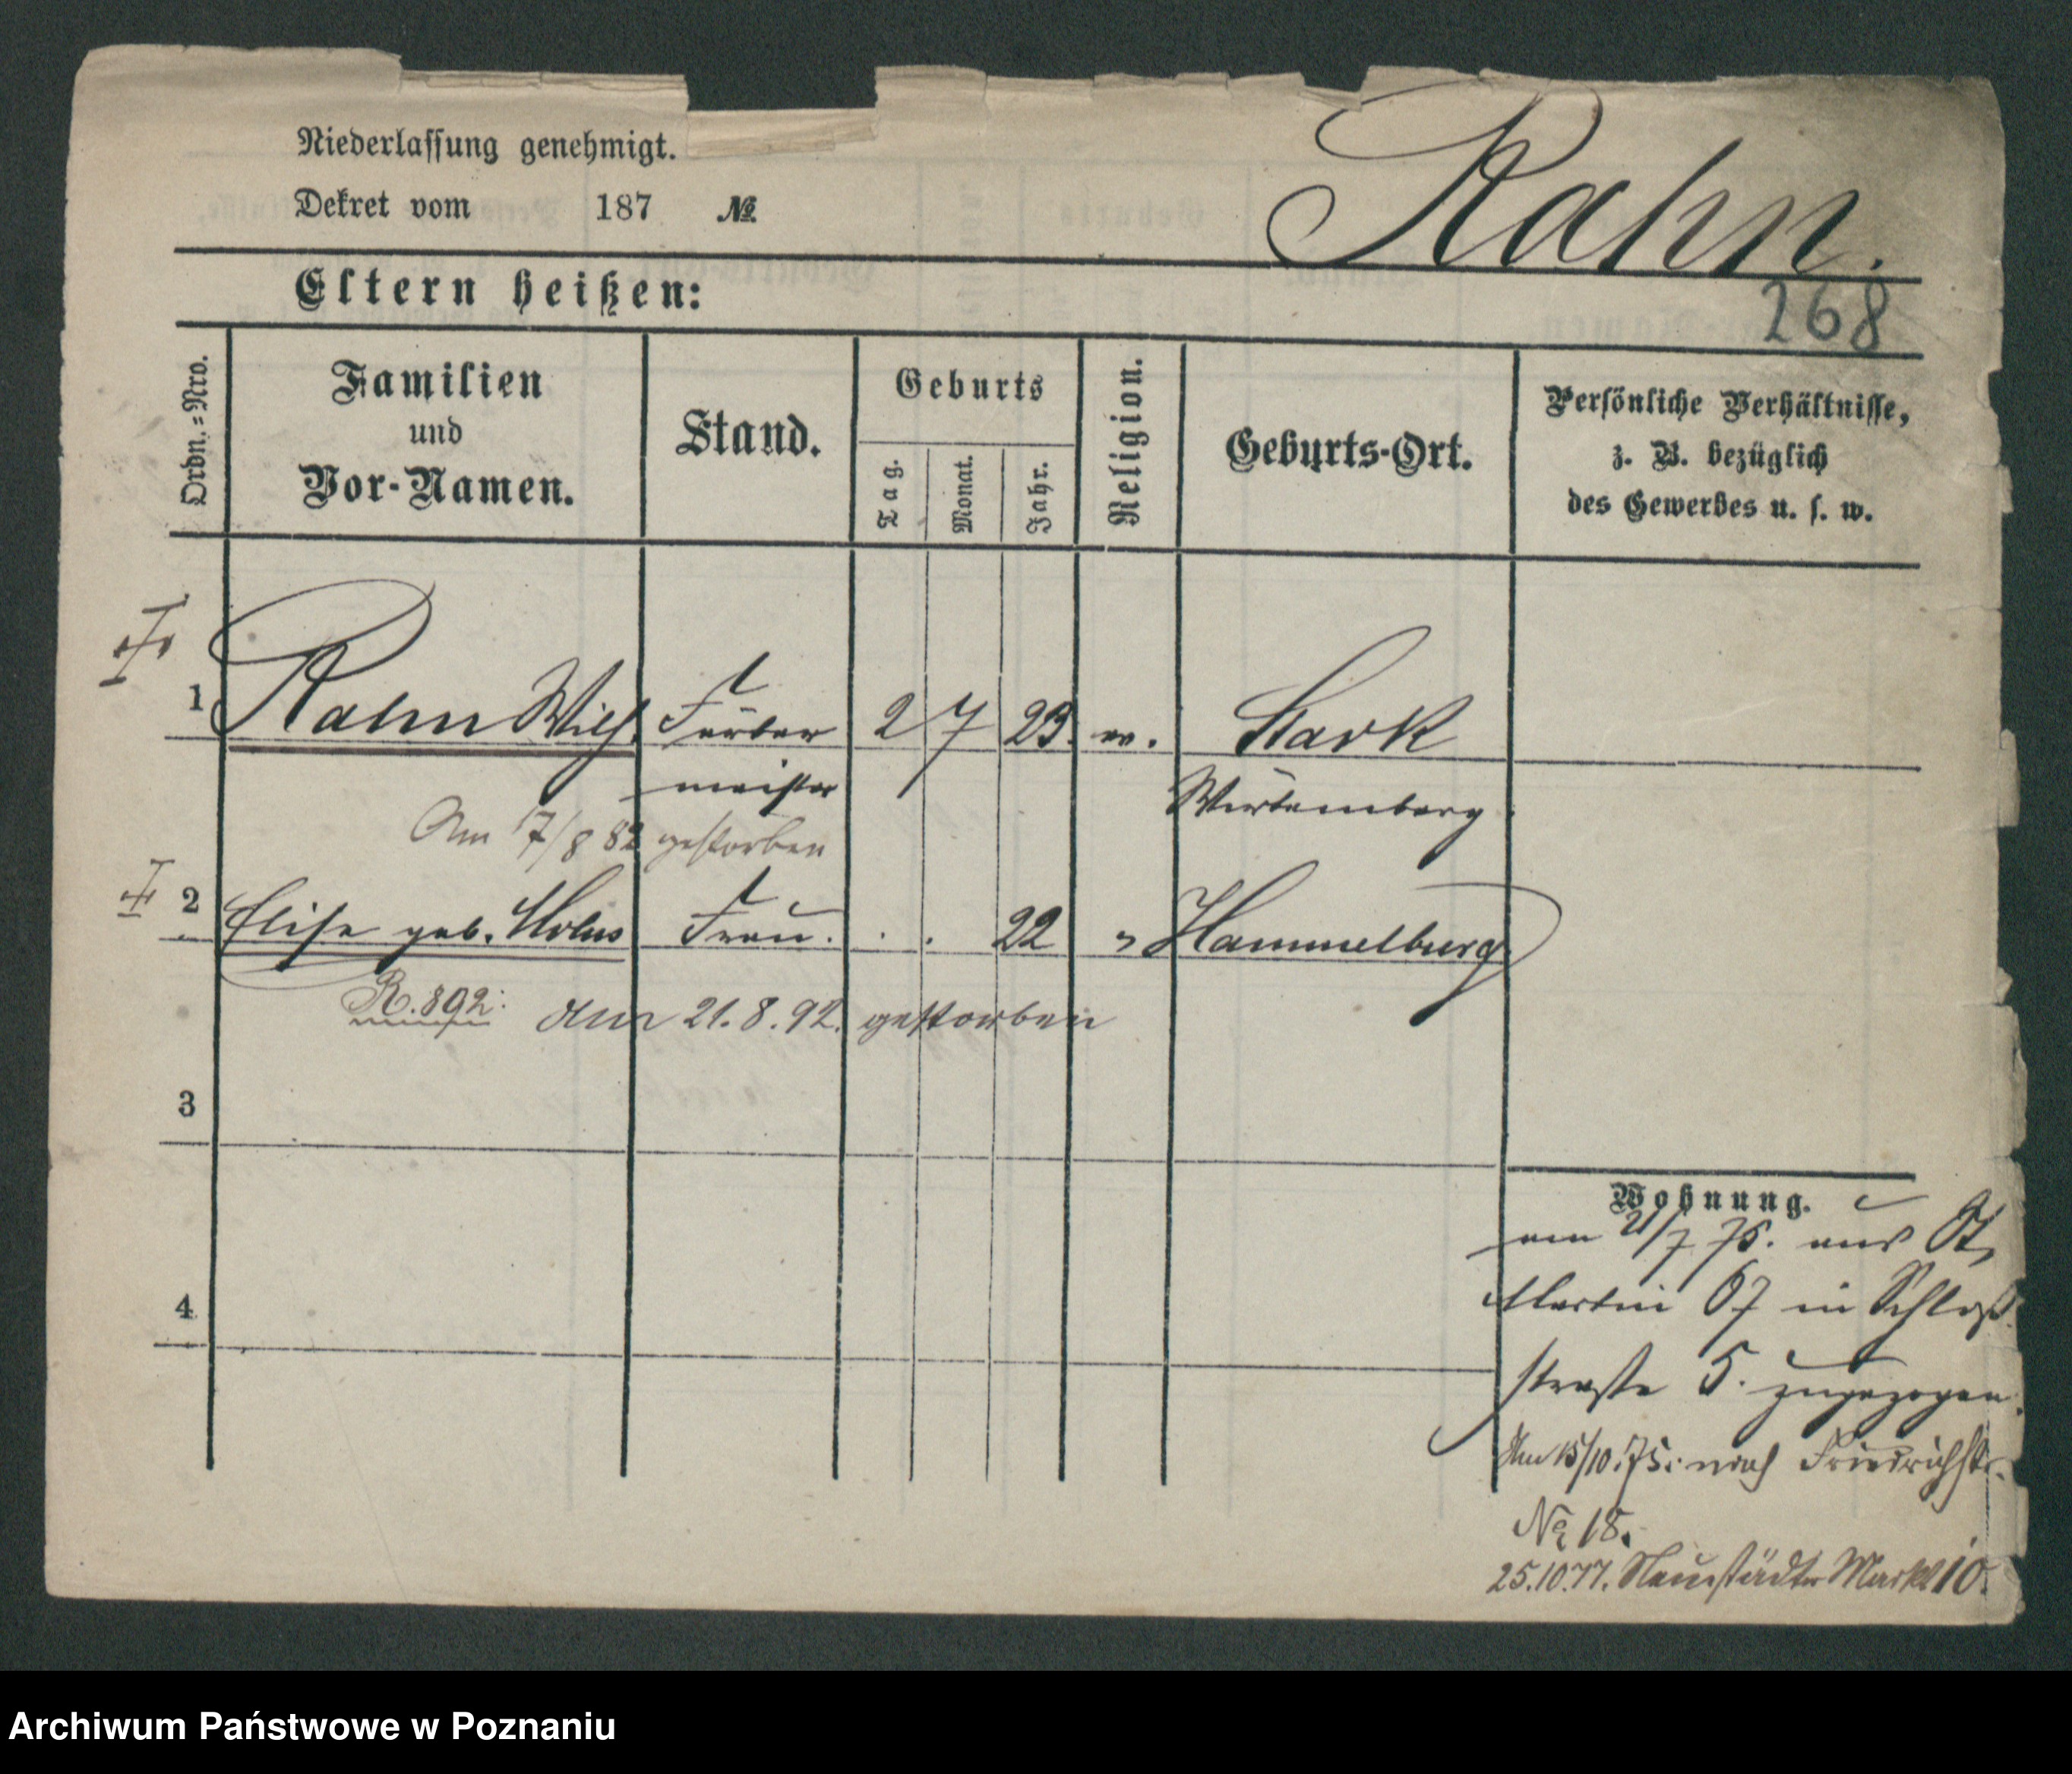 Niederlassung genehmigt.
Dekret vom 187 №
Rahn.
Eltern heißen:
268
Ordn.=Nro.
Familien
und
Vor-Namen.
Stand.
Geburts
Tag.
Monat.
Jahr.
Religion.
Geburts-Ort.
Persönliche Verhältnisse,
z. B. bezüglich
des Gewerbes u. s. w.
1 Rahn Wilh. Färber 2 7 23. ev.
meister Würtemberg
Am 17/8 82 gestorben
2 Elise geb. Frau. 22 " Hammelburg
R. 892: am 21. 8. 92. gestorben
3
4
Wohnung.
am 21/7 75. aus St.
Martin 67 in Schloß
straße 5. zugezogen.
Am 15/10.75. nach Friedrichstr.
№ 18.
25.10.77. Neustädter Markt 10.
Archiwum Państwowe w Poznaniu